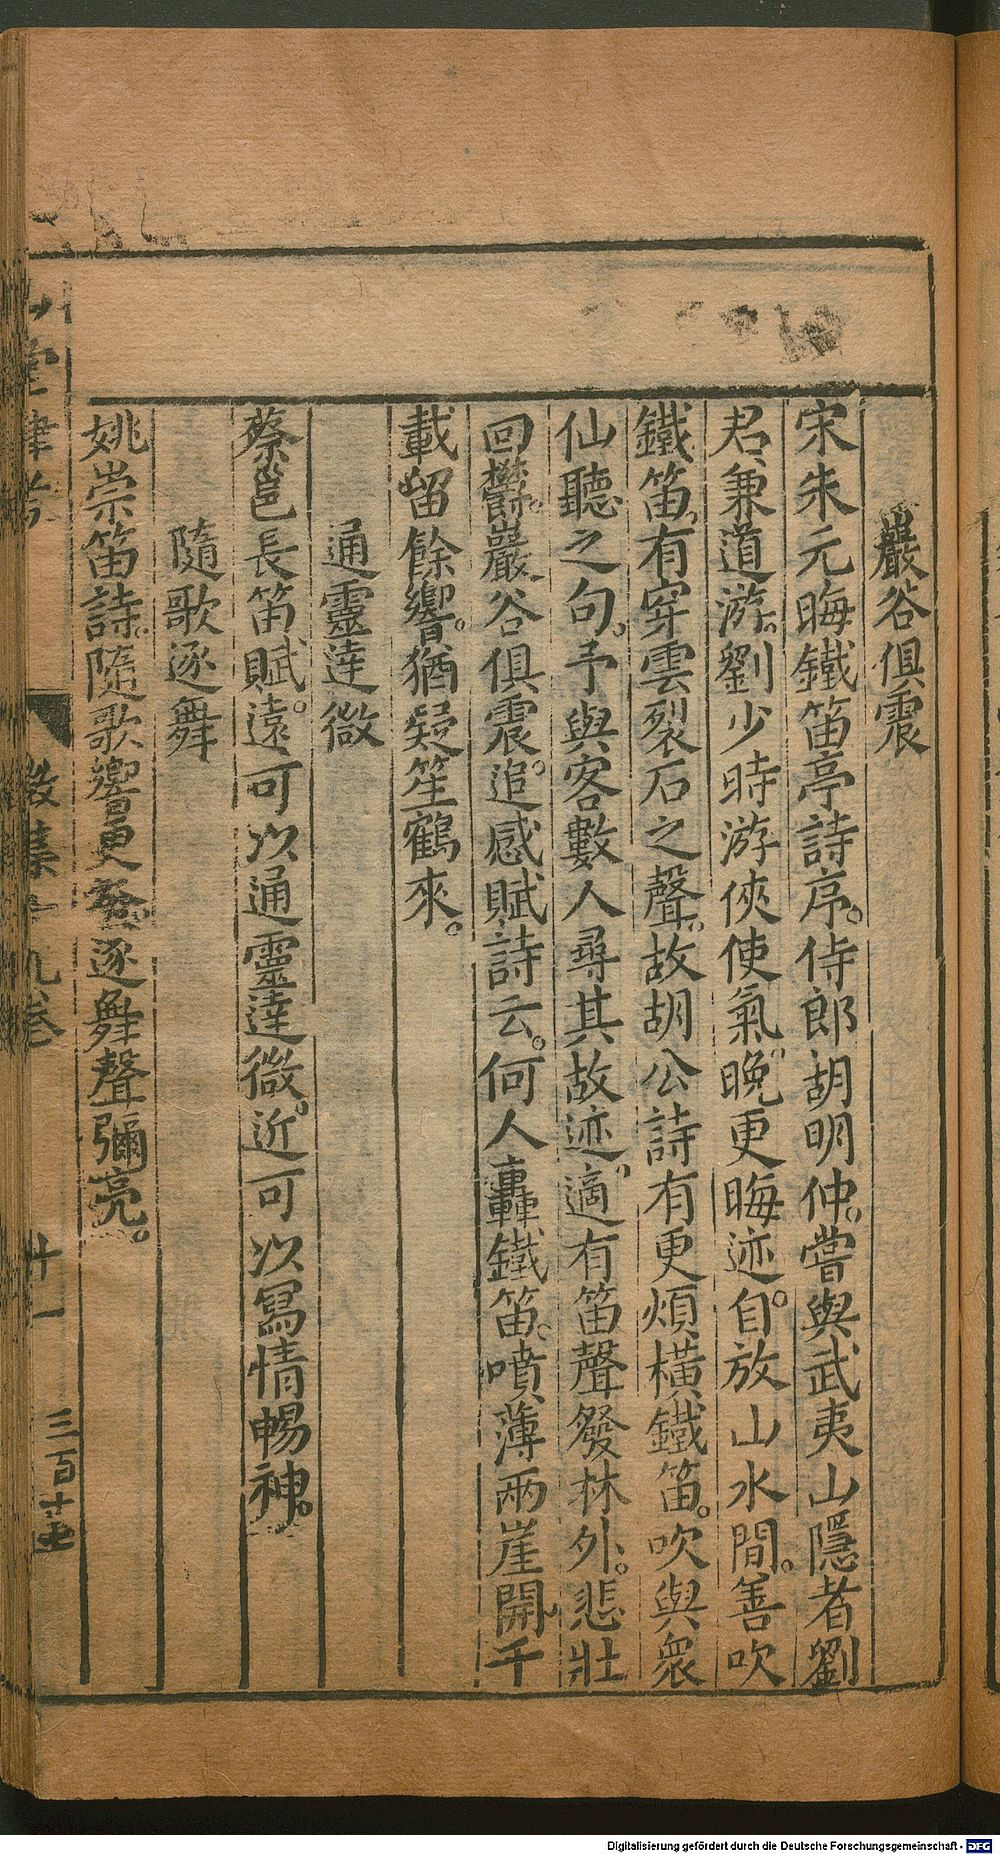 巖谷俱震
宋朱元晦鐵笛亭詩序。侍郎胡明仲。嘗與武夷山隱者劉
君兼道游。劉少時游俠使氣。晚更晦迹。自放山水間。善吹
鐵笛。有穿雲裂石之聲。故胡公詩有更煩橫鐵笛。吹與衆
仙聽之句。予與客數人尋其故迹。適有笛聲發林外。悲壯
回欝。巖谷俱震。追感賦詩云。何人轟鐵笛。噴薄兩崖開千
載留餘響。猶疑笙鶴來。
通靈達微
蔡邕長笛賦。遠可以通靈達微。近可以寫情暢神。
隨歌逐舞
姚崇笛詩。隨歌響更發。逐舞聲彌亮。
堂肆考
徵集十九卷
廿一
三百十
Digitalisierung gefördert durch die Deutsche Forschungsgemeinschaft - DFG